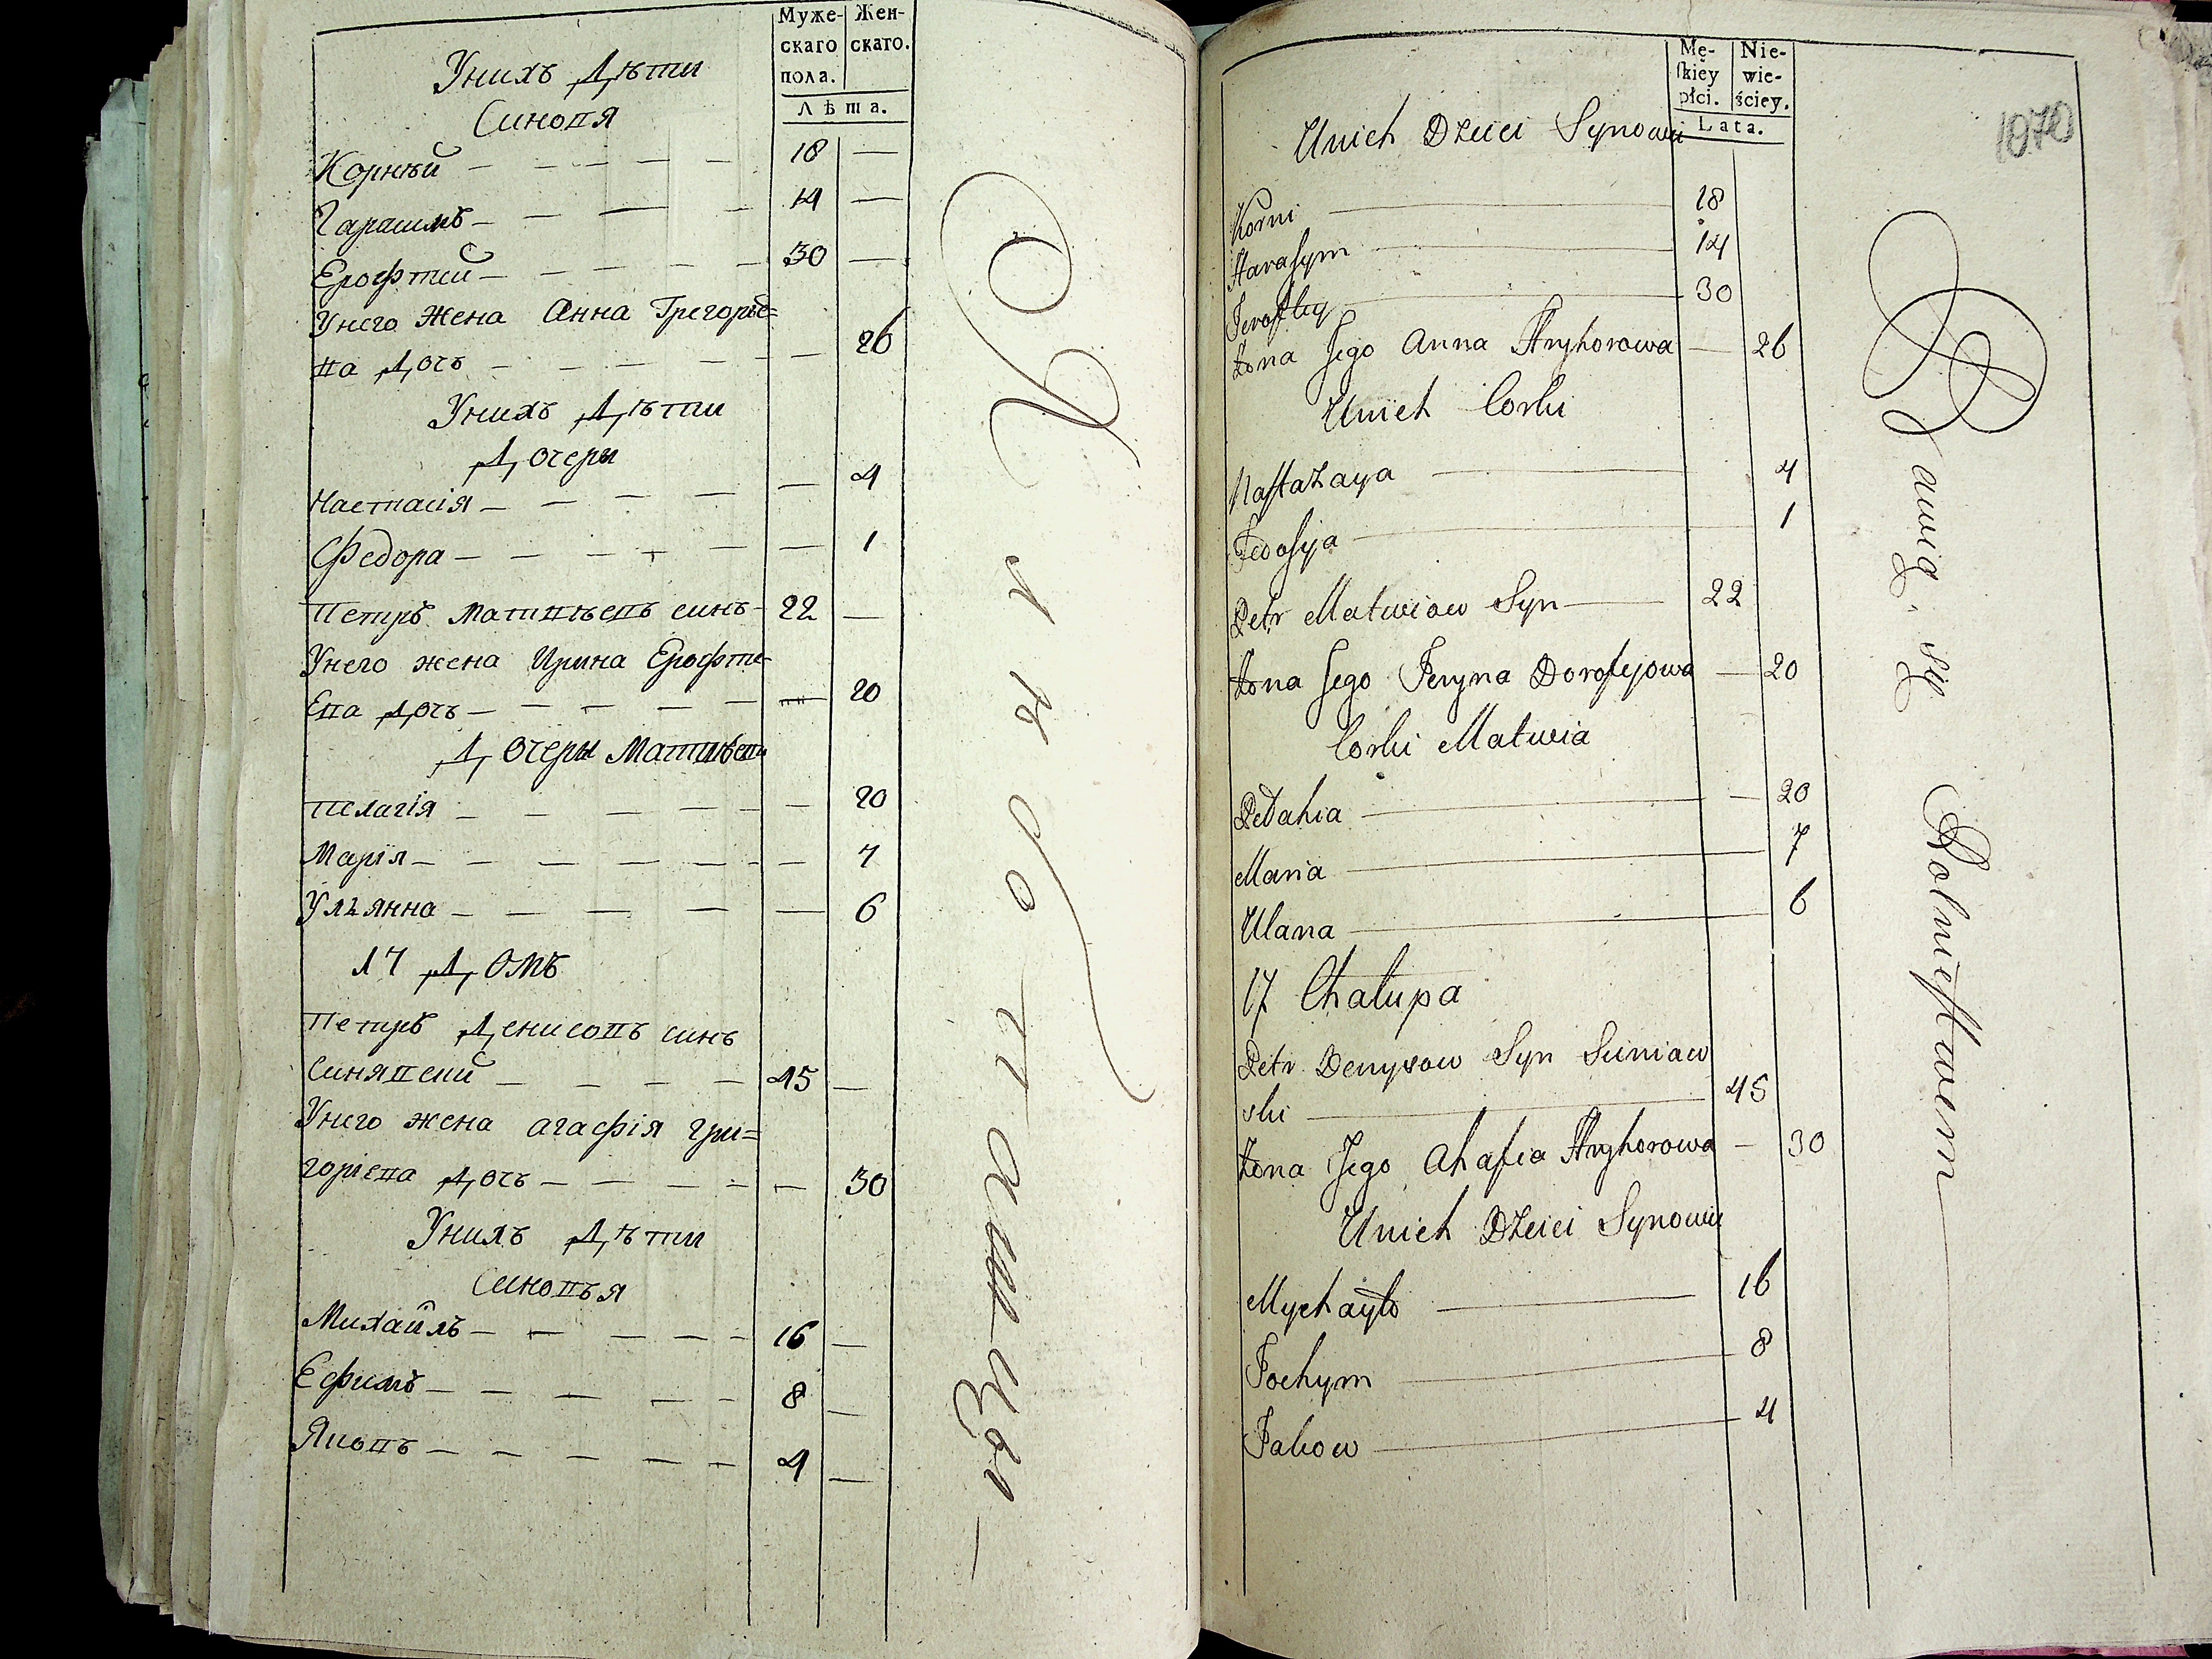 Муже- Жен-
скаго скаго.
пола.
Лѣта.
Унихъ Дѣти
Синовя
Корнѣй — — — — — 18 —
Гарасимъ — — — — — 14 —
Ерофтей — — — — — 30 —
Унего Жена Анна Грегорье=
ва Дочь — — — — — 26
Унихъ Дѣти
Дочеры
Настасія — — — — — 4
Федора — — — — — — 1
Петръ Матвѣевъ синъ — 22 —
Унего жена Ирина Ерофте-
Ева Дочь — — — — — 20
Дочеры Матвѣевы
Пелагія — — — — — 20
Марія — — — — — — 7
Ульянна — — — — — 6
17 Домъ
Петръ Денисовъ синъ
Синявский — — — — 45 —
Унего жена агафія гри=
горіева Дочь — — — — — 30
Унихъ Дѣти
Синовья
Михайлъ — — — — — 16 —
Ефимъ — — — — — 8 —
Яковъ — — — — — 4 —
Mę- Nie-
skiey wie-
płci. ściey.
Lata.
1070
Unich Dzieci Synowie
Korni — 18
Harasym — 14
Jeroftey — 30
żona Jego Anna Hryhorowa — 26
Unich Corki
Nastazaya — 4
Fedosya — 1
Petr Matwiow Syn — 22
żona Jego Jeryna Dorofejowa — 20
Corki Matwia
Pełahia — — 20
Maria — 7
Ulana — 6
17 Chałupa
Petr Denysow Syn Siniaw
ski — 45
żona Jego Ahafia Hryhorowa — 30
Unich Dzieci Synowie
Mychayło — 16
Jochym — 8
Jakow — 4
Bawią się Rolnictwem —